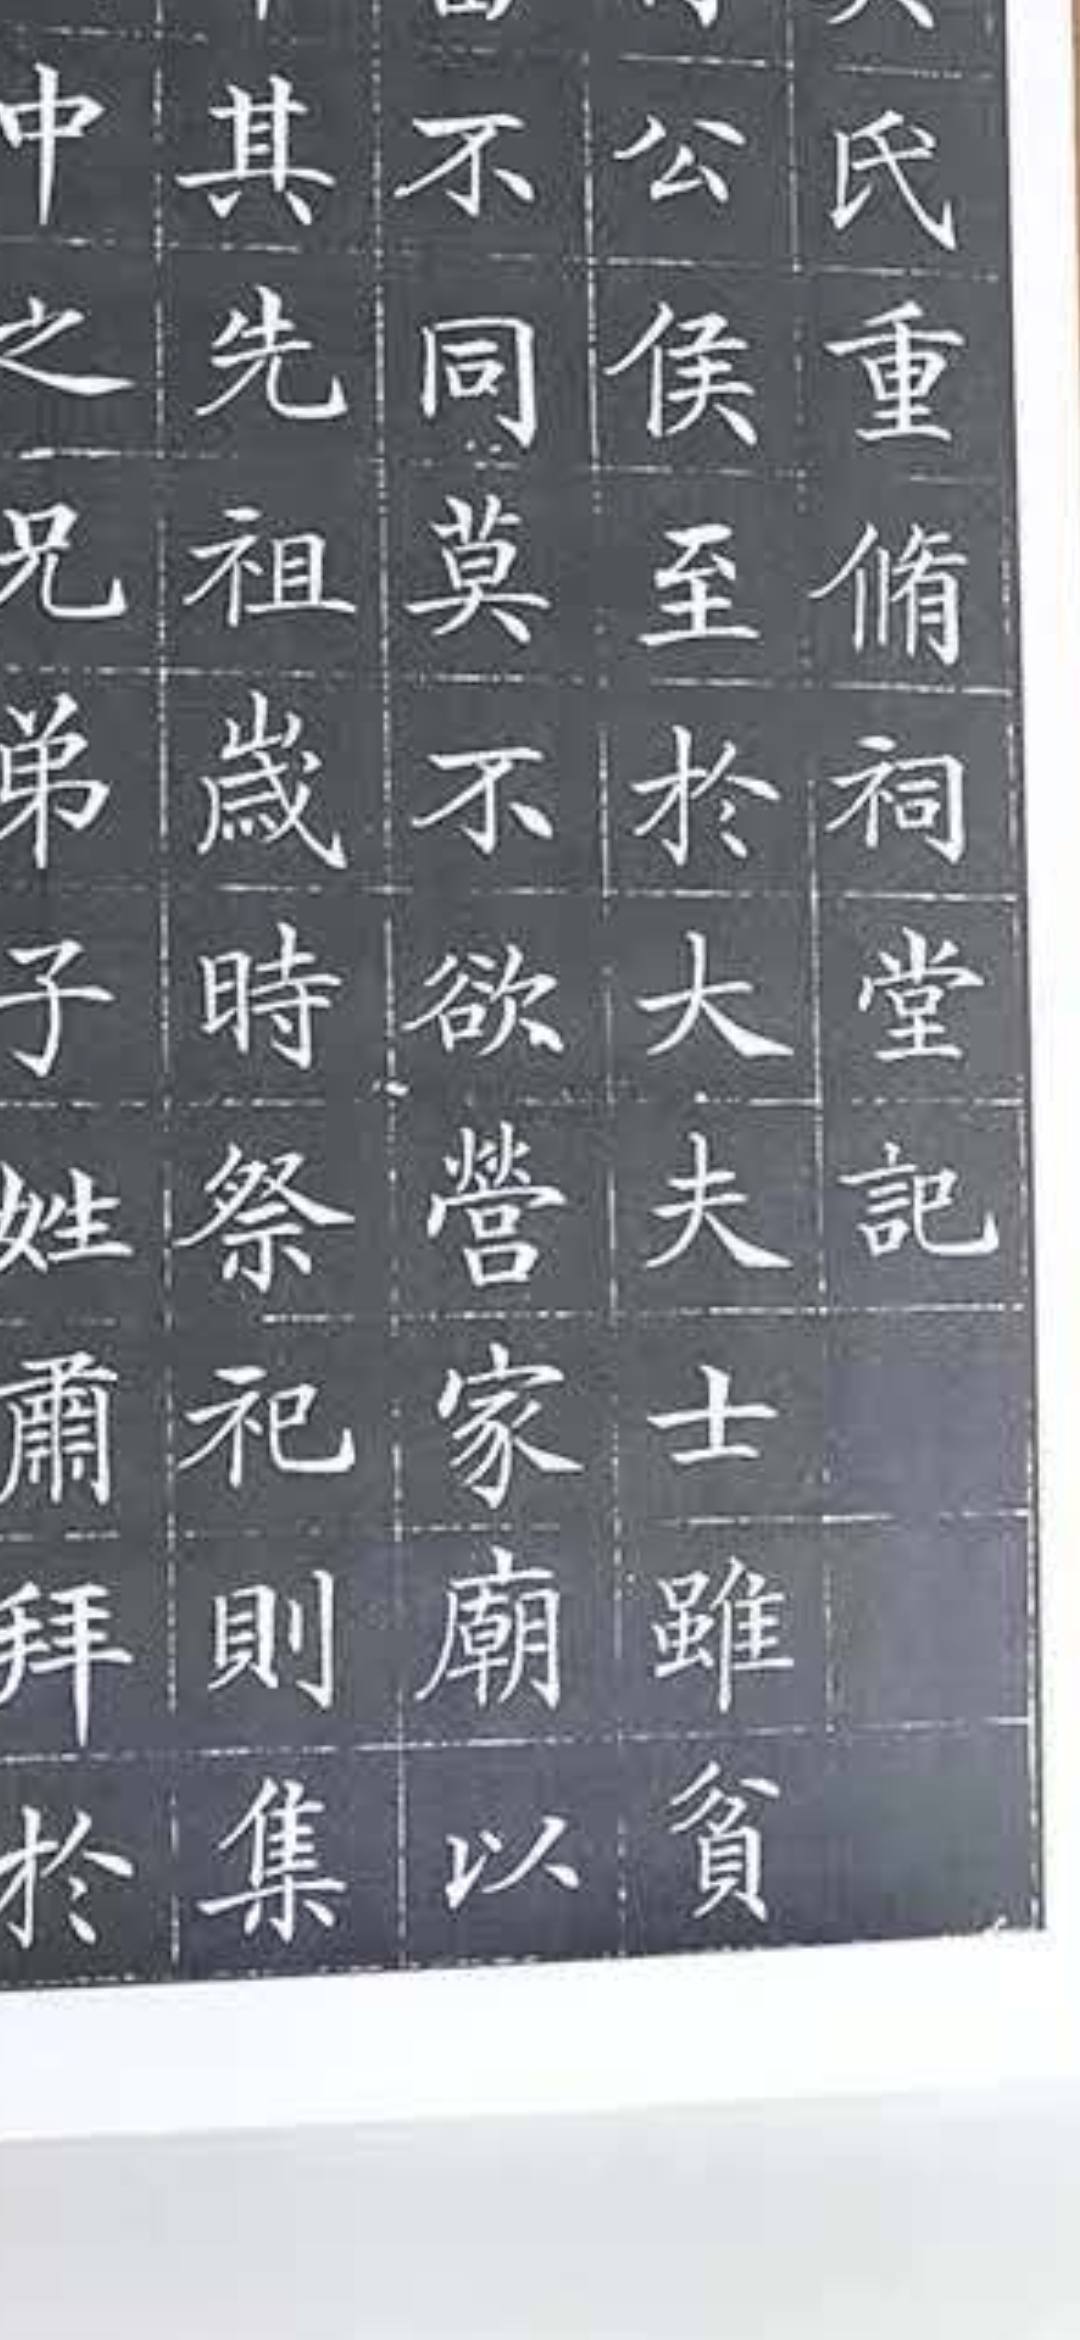 氏重脩祠堂記
公侯至於大夫士雖貧
不同莫不欲營家廟以
其先祖歲時祭祀則集
中之兄弟子姓爾拜於